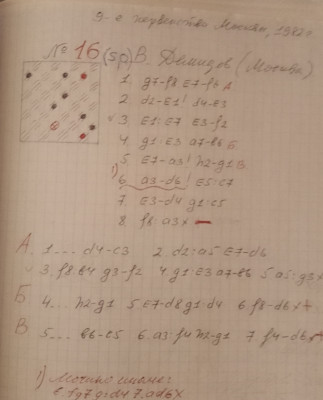 9-е первенство Москвы, 1982 г.
№ 16 (sp) В. Демидов (Москва)
1 g7-f8 E7-f6 A
2 d2-E1! f4-E3
3 E1:E7 E3-f2
4. g1:E3 a7-b6 Б
5 E7-a3! h2-g1 B
1) 6 a3-d6! E5:c7
7. E3-d4 g1:c5
8 f8:a3 X
A. 1... d4-c3 2 d2:a5 E7-d6
3. f8:b4 g3-f2 4 g1:E3 a7-b6 5 a5:g3 x
Б 4... h2-g1 5 E7-d8 g1:d4 6 f8-d6 x
B 5... b6-c5 6. a3:f4 h2-g1 7 f4-d6 x
1) Можно иначе: